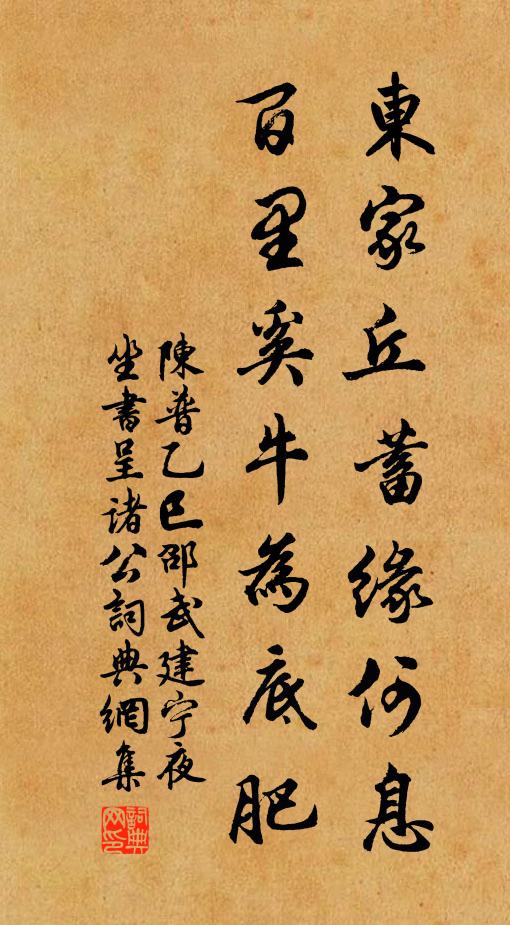 東家丘蓄緣何息
百里奚牛為底肥
陳普乙巳邵武建宁夜
坐書呈诸公詞典網集
詞典
网印